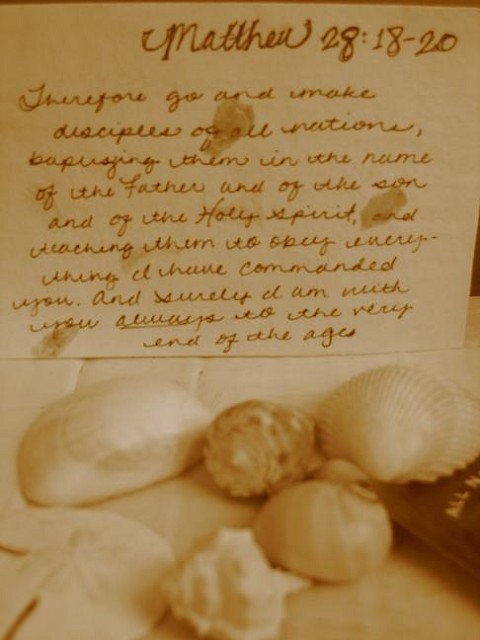 Matthew 28:18-20
Therefore go and make
disciples of all nations,
baptizing them in the name
of the Father and of the son
and of the Holy Spirit, and
teaching them to obey every-
thing I have commanded
you. And surely I am with
you always to the very
end of the ages
ALL N